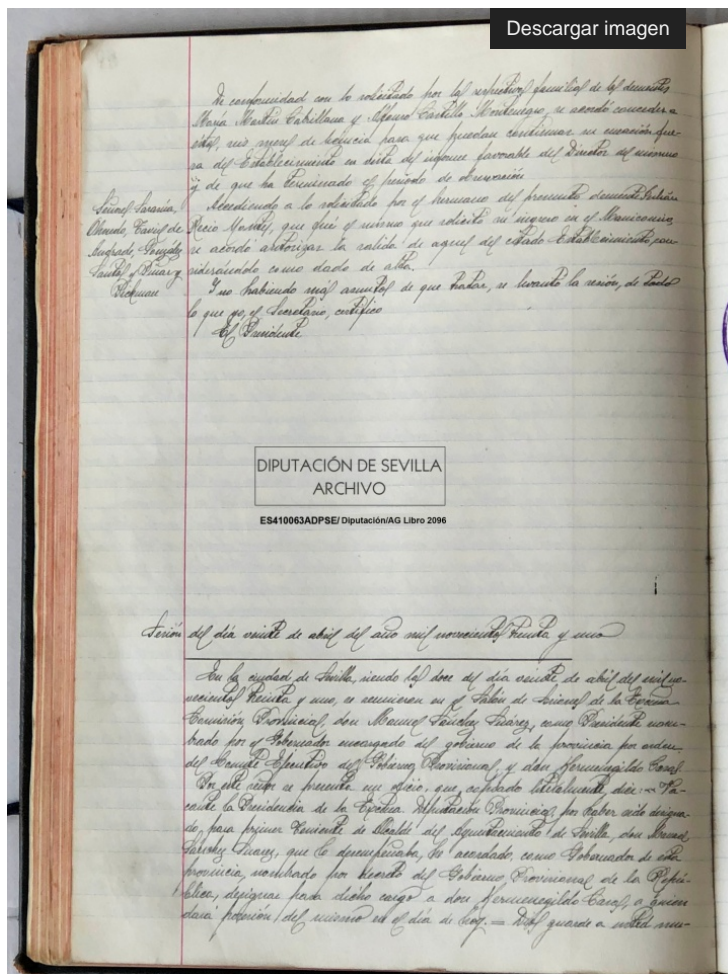 Descargar imagen
De conformidad con lo solicitado por las respectivas familias de los dementes
María Martín Cabrillana y Alfonso Castillo Montenegro, se acordó conceder a
estos, seis meses de licencia para que puedan continuar su curación fue-
ra del Establecimiento en vista del informe favorable del Director del mismo
y de que ha terminado el período de observación
Accediendo a lo solicitado por el hermano del presunto demente
Recio Montes, que fué el mismo que solicitó su ingreso en el Manicomio,
se acordó autorizar la salida de aquel del citado Establecimiento, con-
siderándolo como dado de alta.
Y no habiendo más asuntos de que tratar, se levantó la sesión, de todo
lo que yo, el Secretario, certifico
El Presidente
Señores
Olmedo, de
Andrade, González
Santos y
DIPUTACIÓN DE SEVILLA
ARCHIVO
ES410063ADPSE/ Diputación/AG Libro 2096
Sesión del día veinte de abril del año mil novecientos treinta y uno
En la ciudad de Sevilla, siendo las doce del día veinte de abril del mil no-
vecientos treinta y uno, se reunieron en el Salón de Sesiones de la Excma
Comisión Provincial, don Manuel Sánchez Suárez, como Presidente nom-
brado por el Gobernador encargado del gobierno de la provincia por orden
del Comité Ejecutivo del Gobierno Provisional, y don Hermenegildo Casas.
Por este señor se presenta un oficio, que, copiado literalmente, dice: - Va-
cante la Presidencia de la Excma Diputación Provincial, por haber sido designa-
do para primer Teniente de Alcalde del Ayuntamiento de Sevilla, don Manuel
Sánchez Suarez, que la desempeñaba, he acordado, como Gobernador de esta
provincia, nombrado por decreto del Gobierno Provisional de la Repú-
blica, designar para dicho cargo a don Hermenegildo Casas, a quien
dará posesión del mismo en el día de hoy. = Dios guarde a usted mu-